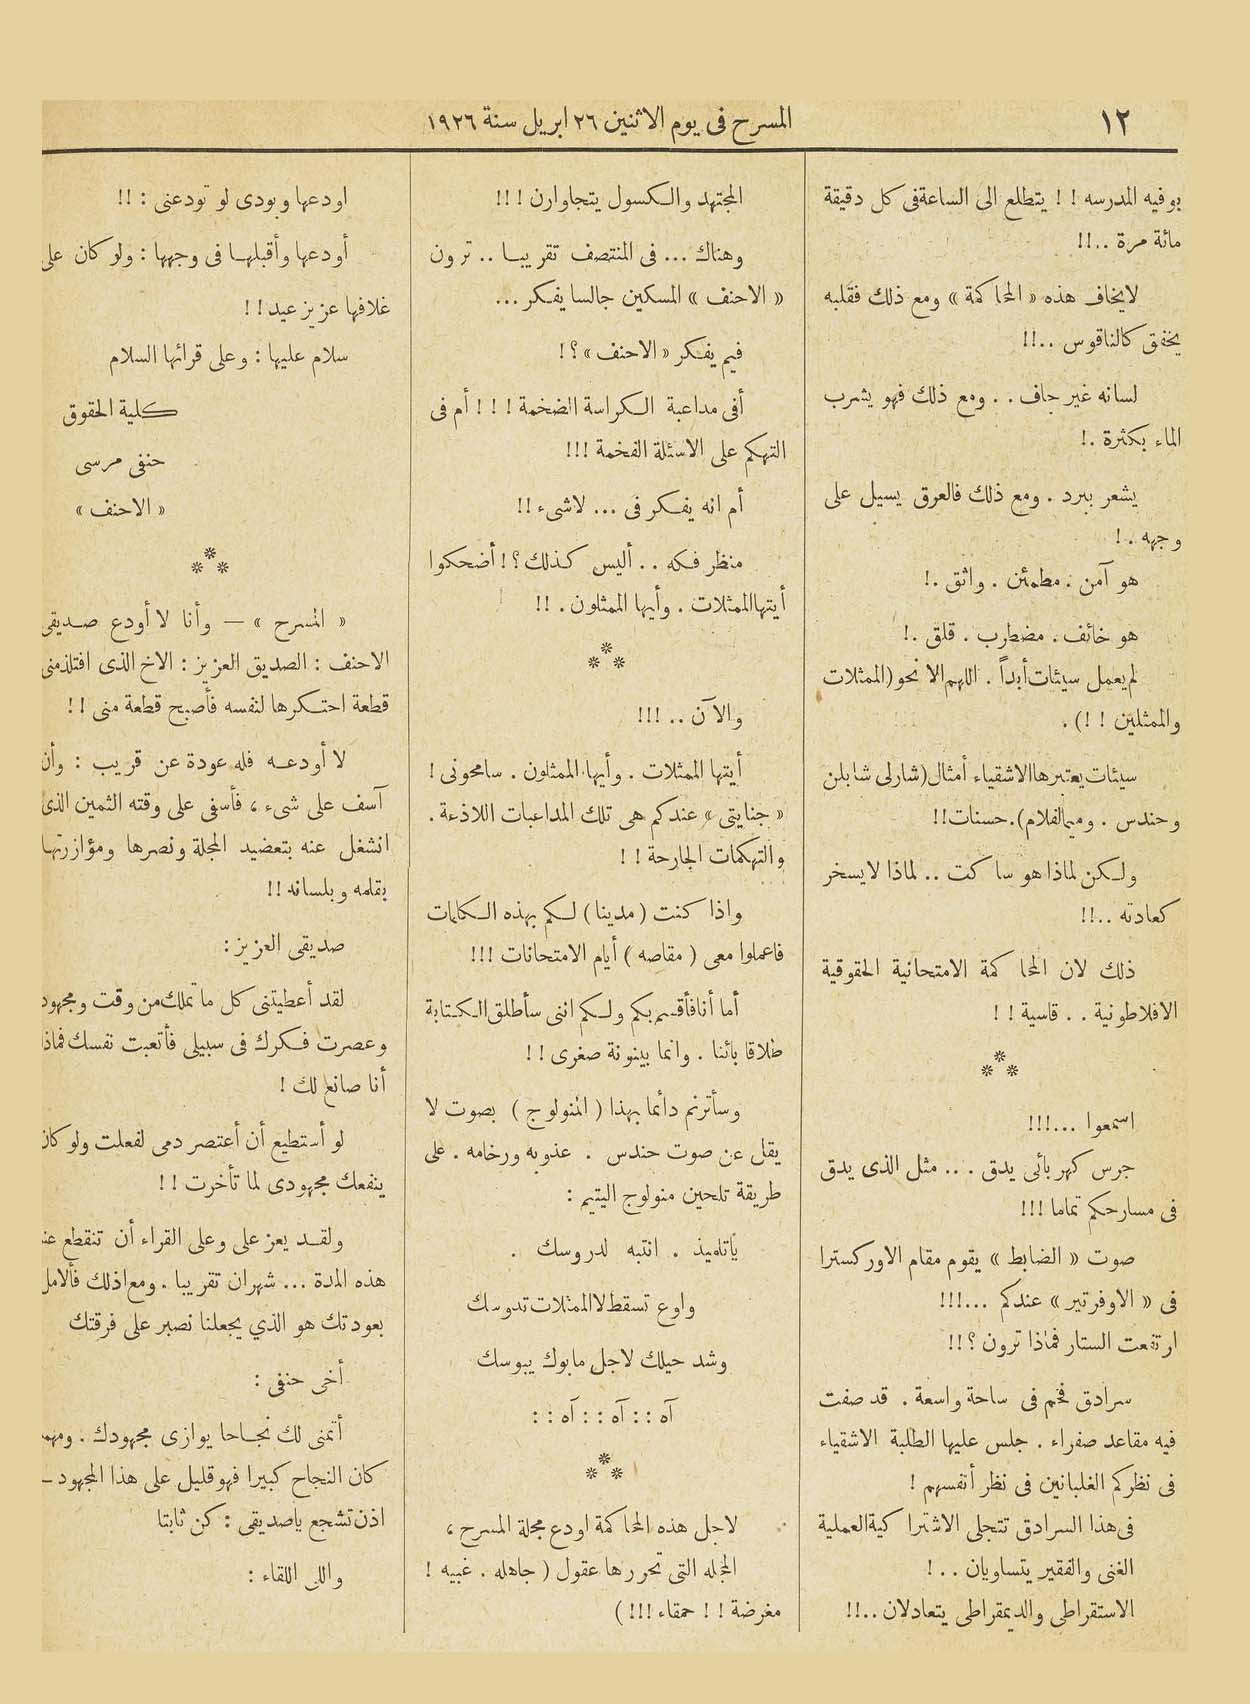 ١٢
المسرح فى يوم الاثنين ٢٦ ابريل سنة ١٩٢٦
بوفيه المدرسه ! ! يتطلع الى الساعة فى كل دقيقة
مائة مرة ..!!
لايخاف هذه « المحاكمة » ومع ذلك فقلبه
يخفق كالناقوس ..!!
لسانه غير جاف . . ومع ذلك فهو يشرب
الماء بكثرة .!
يشعر ببرد . ومع ذلك فالعرق يسيل على
وجهه . !
هو آمن . مطمئن . واثق .!
هو خائف . مضطرب . قلق .!
لم يعمل سيئات أبداً . اللهم الا نحو (الممثلات
والممثلين ! !) .
سيئات يعتبرها الاشقياء أمثال (شارلى شابلن
وحندس . وميمالفلام). حسنات!!
ولكن لماذا هو ساكت .. لماذا لايسخر
كعادته ..!!
ذلك لان المحاكمة الامتحانية الحقوقية
الافلاطونية . . قاسية ! !
⁂
اسمعوا ...!!!
جرس كهربائى يدق . .. مثل الذى يدق
فى مسارحكم تماما !!!
صوت « الضابط » يقوم مقام الاوركسترا
فى « الاوفرتير » عندكم ...!!!
ارتفعت الستار فماذا ترون ؟!!
سرادق فخم فى ساحة واسعة . قد صفت
فيه مقاعد صفراء . جلس عليها الطلبة الاشقياء
فى نظركم الغلبانين فى نظر أنفسهم !
فى هذا السرادق تتجلى الاشتراكية العملية
الغنى والفقير يتساويان . . !
الاستقراطى والديمقراطى يتعادلان ..!!
المجتهد والكسول يتجاوران ! !!
وهناك ... فى المنتصف تقريبا .. ترون
« الاحنف » المسكين جالسا يفكر ...
فيم يفكر « الاحنف » ؟ !
أفى مداعبة الكراسة الضخمة ! ! ! أم فى
التهكم على الاسئلة الفخمة !!!
أم انه يفكر فى ... لاشىء !!
منظر فكه . . أليس كذلك ؟ ! أضحكوا
أيتها الممثلات . وأيها الممثلون . !!
⁂
والآن .. !!!
أيتها الممثلات . وأيها الممثلون . سامحونى !
« جنايتى » عندكم هى تلك المداعبات اللاذعة .
والتهكمات الجارحة ! !
واذا كنت ( مدينا ) لكم بهذه الكلمات
فاعملوا معى ( مقاصه ) أيام الامتحانات !!!
أما أنا فأقسم بكم ولكم اننى سأطلق الكتابة
طلاقا بائنا . وانما بينونة صغرى ! !
وسأترنم دائما بهذا ( المنولوج ) بصوت لا
يقل عن صوت حندس . عذوبه ورخامه . على
طريقة تلحين منولوج اليتيم :
ياتلميذ . انتبه لدروسك .
واوع تسقط لاالممثلات تدوسك
وشد حيلك لاجل مابوك يبوسك
آه : : آه : : آه : :
⁂
لاجل هذه المحاكمة اودع مجلة المسرح ،
المجله التى تحررها عقول ( جاهله . غبيه !
مغرضة ! ! حمقاء !!! )
اودعها وبودى لو تودعنى : !!
أودعها وأقبلها فى وجهها : ولو كان على
غلافها عزيز عيد ! !
سلام عليها : وعلى قرائها السلام
كلية الحقوق
حنفى مرسى
« الاحنف »
⁂
« المسرح » — وأنا لا أودع صديقى
الاحنف : الصديق العزيز : الاخ الذى افتلذ منى
قطعة احتكرها لنفسه فأصبح قطعة منى ! !
لا أودعه فله عودة عن قريب : وأن
آسف على شىء ، فأسفى على وقته الثمين الذى
انشغل عنه بتعضيد المجلة ونصرها ومؤازرتها
بقلمه وبلسانه !!
صديقى العزيز :
لقد أعطيتنى كل ماتملك من وقت ومجهود
وعصرت فكرك فى سبيلى فأتعبت نفسك فماذا
أنا صانع لك !
لو أستطيع أن أعتصر دمى لفعلت ولو كان
ينفعك مجهودى لما تأخرت ! !
ولقد يعز على وعلى القراء أن تنقطع
هذه المدة ... شهران تقريبا . ومع اذلك فألامل
بعودتك هو الذي يجعلنا نصبر على فرقتك
أخى حنفى :
أتمنى لك نجاحا يوازى مجهودك .
كان النجاح كبيرا فهو قليل على هذا المجهود —
اذن تشجع ياصديقى : كن ثابتا
والى اللقاء :